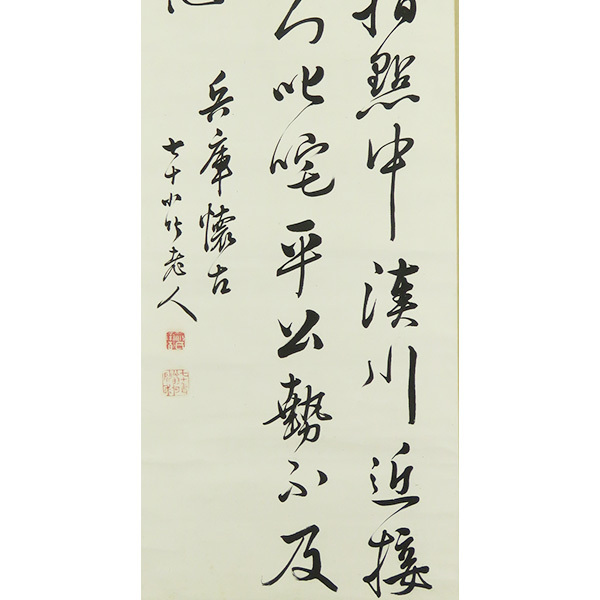 指點中湊川近接
叱咤平公勢不及
兵庫懷古
七十小竹老人